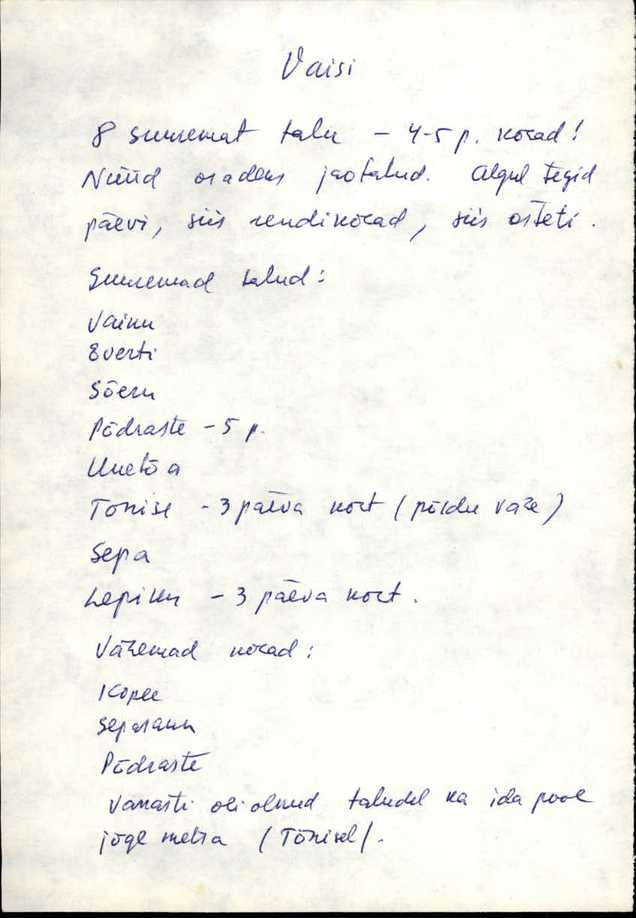 Vaisi
8 suuremat talu - 4-5 p. kocad!
Nüüd osadeks jaotatud. Algul tegid
päevi, siis rendikocad, siis osteti.
Suuremad talud:
Vainu
Everti
Sõeru
Põdraste - 5 p.
Unetõa
Tõnise - 3 päeva koct (põldu vähe)
Sepa
Lepiku - 3 päeva koct.
Vähemad kocad:
Kopee
Separann
Põdraste
Vanasti oli olnud taludel ka ida pool
jõge metsa (Tõnisel).